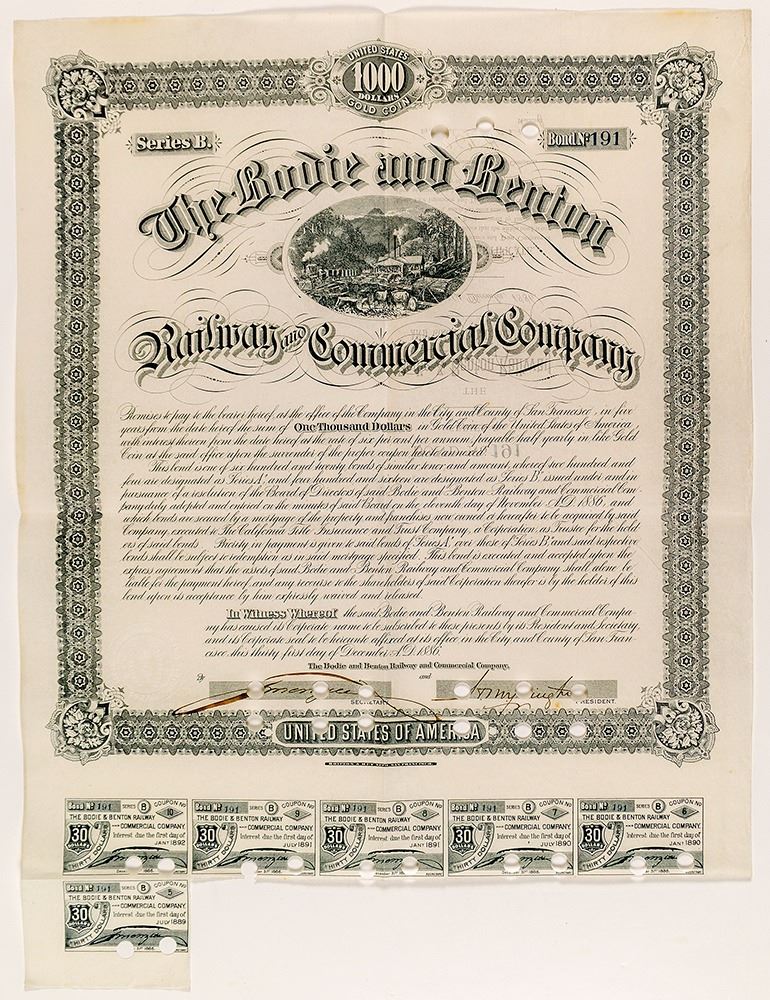 UNITED STATES
1000
DOLLARS
GOLD COIN
Series B.
Bond Nº 191
The Bodie and Benton
Railway and Commercial Company
Promises to pay to the bearer hereof, at the office of the Company in the City and County of San Francisco, in five
years from the date hereof the sum of One Thousand Dollars in Gold Coin of the United States of America,
with interest thereon from the date hereof at the rate of six per cent per annum, payable half yearly in like Gold
Coin at the said office upon the surrender of the proper coupon hereto annexed.
This bond is one of six hundred and twenty bonds of similar tenor and amount, whereof two hundred and
four are designated as Series "A" and four hundred and sixteen are designated as Series "B", issued under and in
pursuance of a resolution of the Board of Directors of said Bodie and Benton Railway and Commercial Com-
pany duly adopted and entered on the minutes of said Board on the eleventh day of November A.D. 1886, and
which bonds are secured by a mortgage of the property and franchises now owned or hereafter to be acquired by said
Company executed to The California Title Insurance and Trust Company, a Corporation, as Trustee for the hold
ers of said bonds. Priority in payment is given to said bonds of Series "A" over those of Series "B" and said respective
bonds shall be subject to redemption as in said mortgage specified. This bond is executed and accepted upon the
express agreement that the assets of said Bodie and Benton Railway and Commercial Company shall alone be
liable for the payment hereof, and any recourse to the shareholders of said Corporation therefor is by the holder of this
bond upon its acceptance by him expressly waived and released.
In Witness Whereof the said Bodie and Benton Railway and Commercial Compa-
ny has caused its Corporate name to be subscribed to these presents by its President and Secretary,
and its Corporate seal to be hereunto affixed at its office in the City and County of San Fran-
cisco, this thirty first day of December A.D. 1886.
The Bodie and Benton Railway and Commercial Company,
By
and
SECRETARY
PRESIDENT.
UNITED STATES OF AMERICA
Bond Nº 191 SERIES B COUPON Nº 10
THE BODIE & BENTON RAILWAY
AND COMMERCIAL COMPANY
30
THIRTY DOLLARS
Interest due the first day of
JANY 1892
Bond Nº 191 SERIES B COUPON Nº 9
THE BODIE & BENTON RAILWAY
AND COMMERCIAL COMPANY
30
THIRTY DOLLARS
Interest due the first day of
JULY 1891
Bond Nº 191 SERIES B COUPON Nº 8
THE BODIE & BENTON RAILWAY
AND COMMERCIAL COMPANY
30
THIRTY DOLLARS
Interest due the first day of
JANY 1891
Bond Nº 191 SERIES B COUPON Nº 7
THE BODIE & BENTON RAILWAY
AND COMMERCIAL COMPANY
30
THIRTY DOLLARS
Interest due the first day of
JULY 1890
Bond Nº 191 SERIES B COUPON Nº 6
THE BODIE & BENTON RAILWAY
AND COMMERCIAL COMPANY
30
THIRTY DOLLARS
Interest due the first day of
JANY 1890
Bond Nº 191 SERIES B COUPON Nº 5
THE BODIE & BENTON RAILWAY
AND COMMERCIAL COMPANY
30
THIRTY DOLLARS
Interest due the first day of
JULY 1889